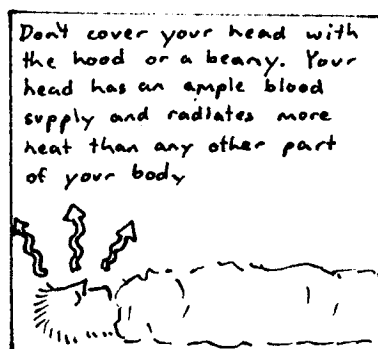 Don't cover your head with
the hood or a beany. Your
head has an ample blood
supply and radiates more
heat than any other part
of your body